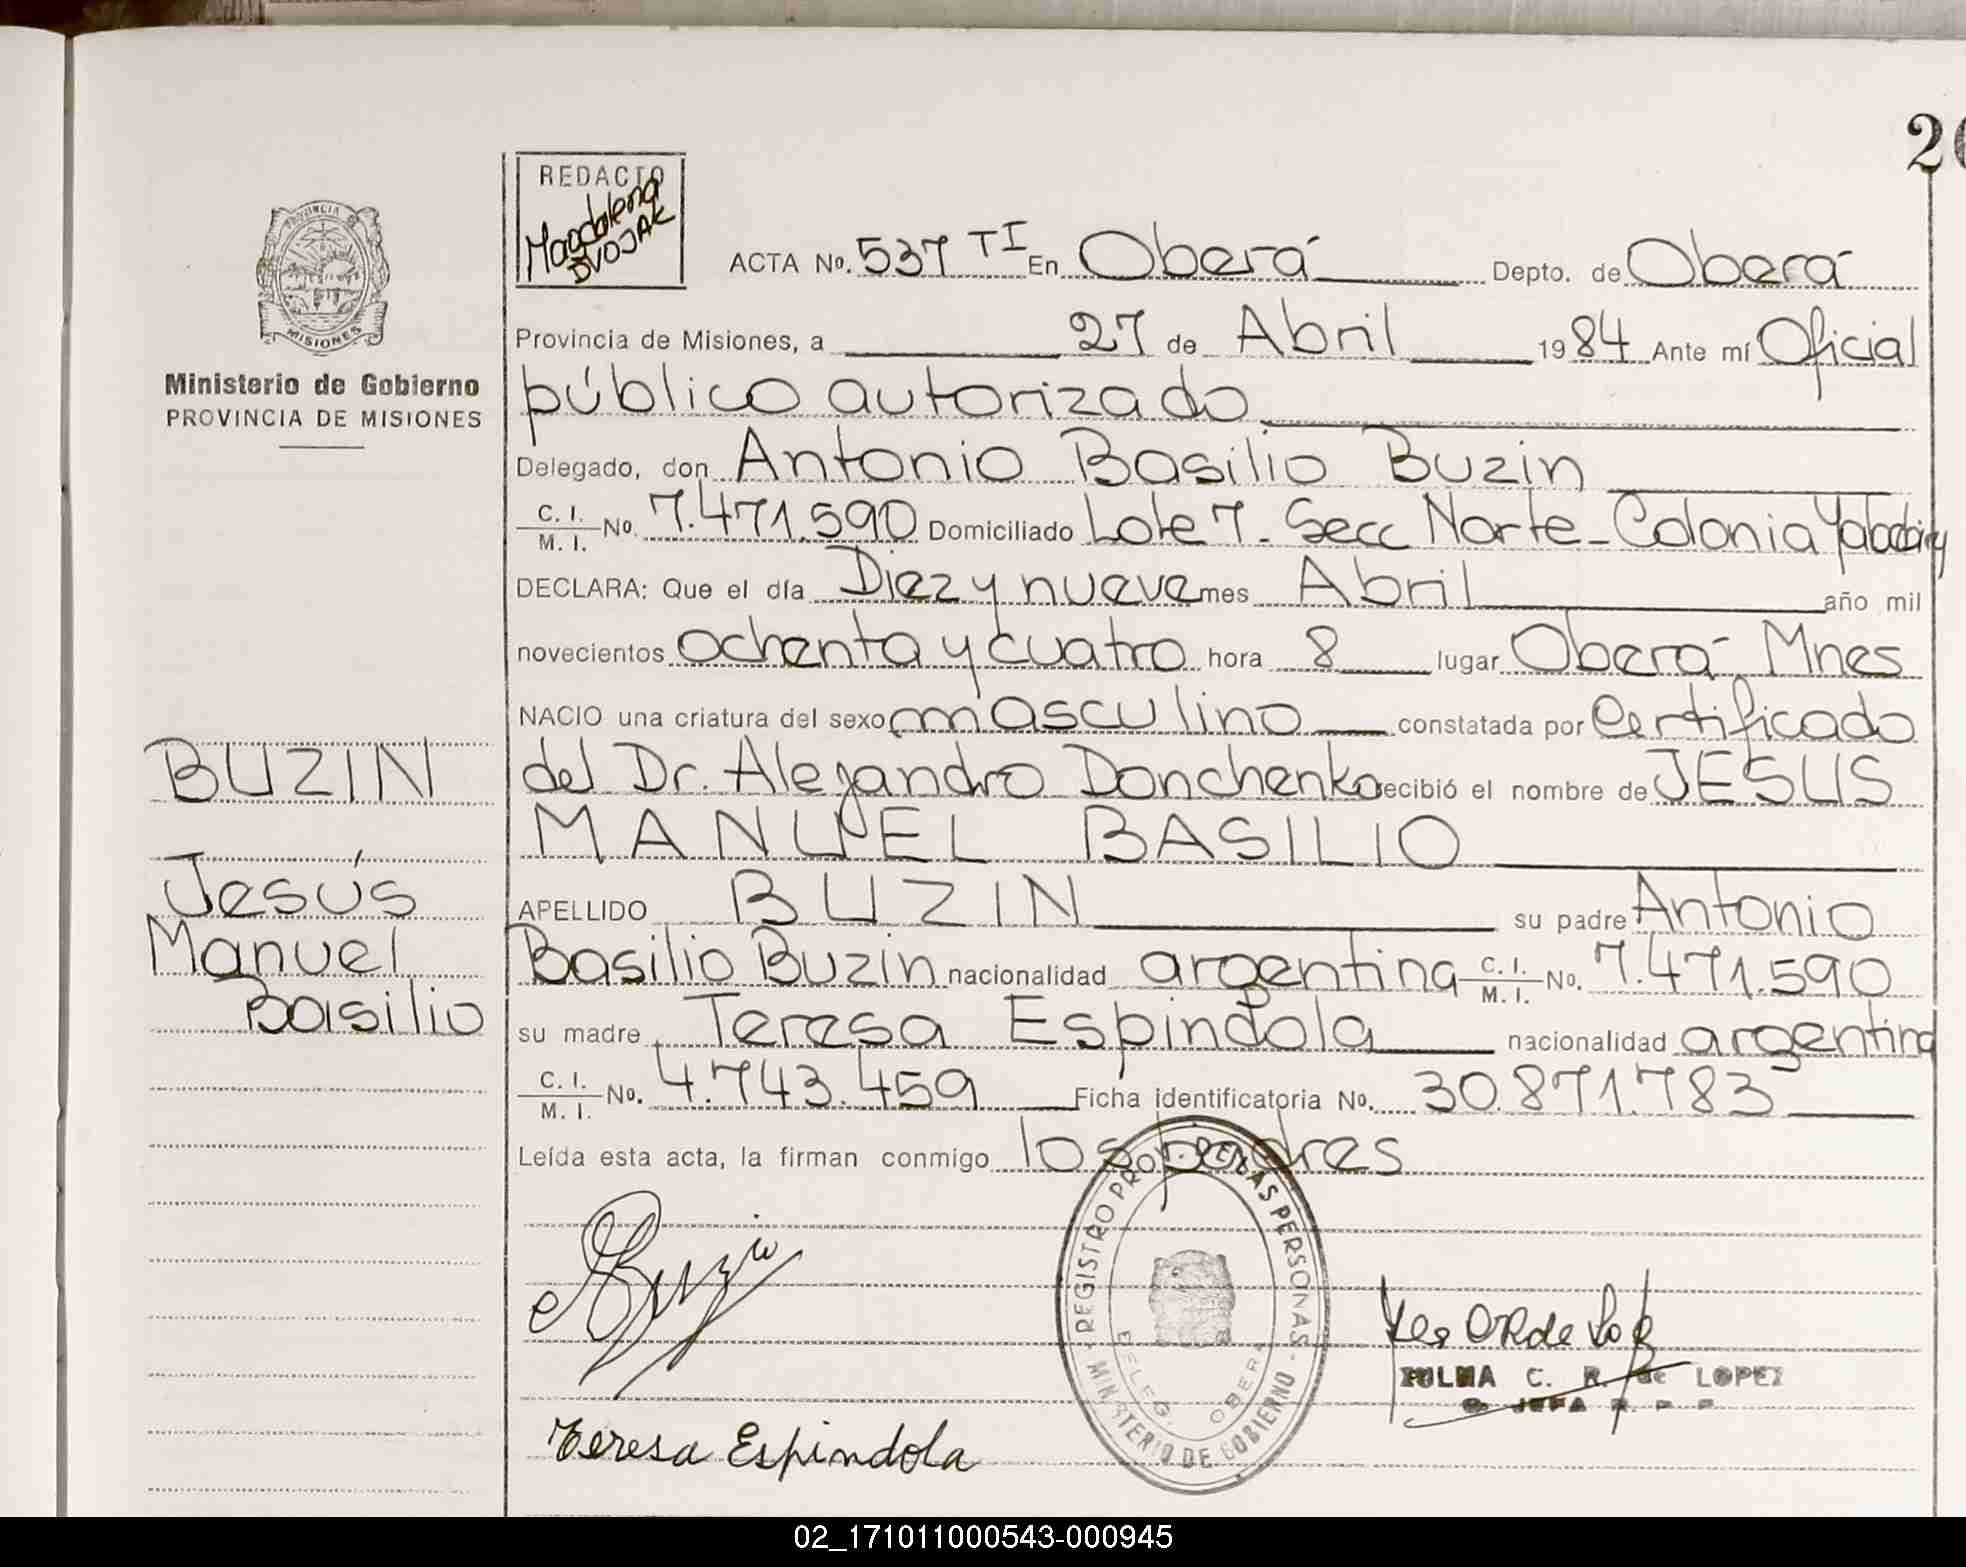 20
REDACTO
Magdalena
DVOJAK
PROVINCIA
MISIONES
Ministerio de Gobierno
PROVINCIA DE MISIONES
ACTA No. 537 TI En Oberá Depto. de Oberá
Provincia de Misiones, a 27 de Abril 1984 Ante mí Oficial
público autorizado
Delegado, don Antonio Basilio Buzin
C. I. / M. I. No. 7.471.590 Domiciliado Lote 7. Secc Norte - Colonia
DECLARA: Que el día Diez y nueve mes Abril año mil
novecientos ochenta y cuatro hora 8 lugar Oberá Mnes
NACIO una criatura del sexo masculino constatada por Certificado
del Dr. Alejandro Donchenko recibió el nombre de JESUS
MANUEL BASILIO
APELLIDO BUZIN su padre Antonio
Basilio Buzin nacionalidad argentina C. I. / M. I. No. 7.471.590
su madre Teresa Espindola nacionalidad argentina
C. I. / M. I. No. 4.743.459 Ficha identificatoria No. 30.871.783
Leída esta acta, la firman conmigo los padres
BUZIN
Jesús
Manuel
Basilio
Buzin
Teresa Espindola
REGISTRO PROV. DE LAS PERSONAS
MINISTERIO DE GOBIERNO
DELEG. OBERA
ZULMA C. R. de LOPEZ
JEFA
02_171011000543-000945